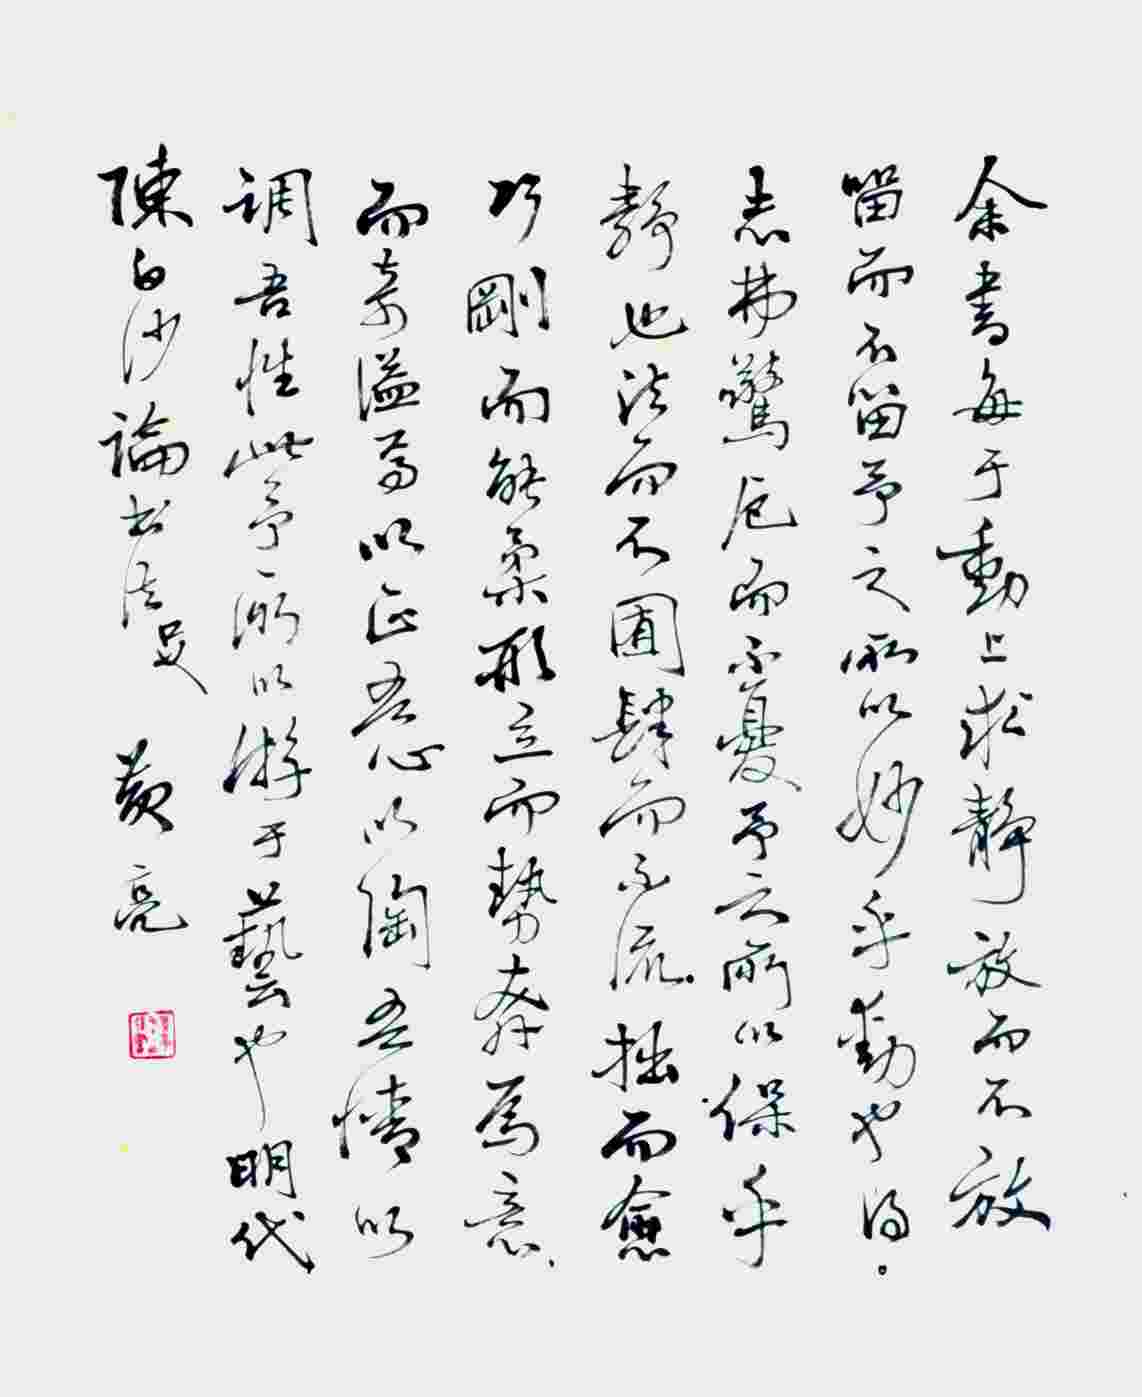 余書每于動上求靜放而不放
留而不留予之所以妙乎動也得
志弗驚厄而不憂予之所以保乎
靜也法而不囿肆而不流拙而愈
巧剛而能柔形立而勢奔焉意
而奇溢焉以正吾心以陶吾情以
调吾性此予所以游于藝也明代
陳白沙論书法史
黄亮